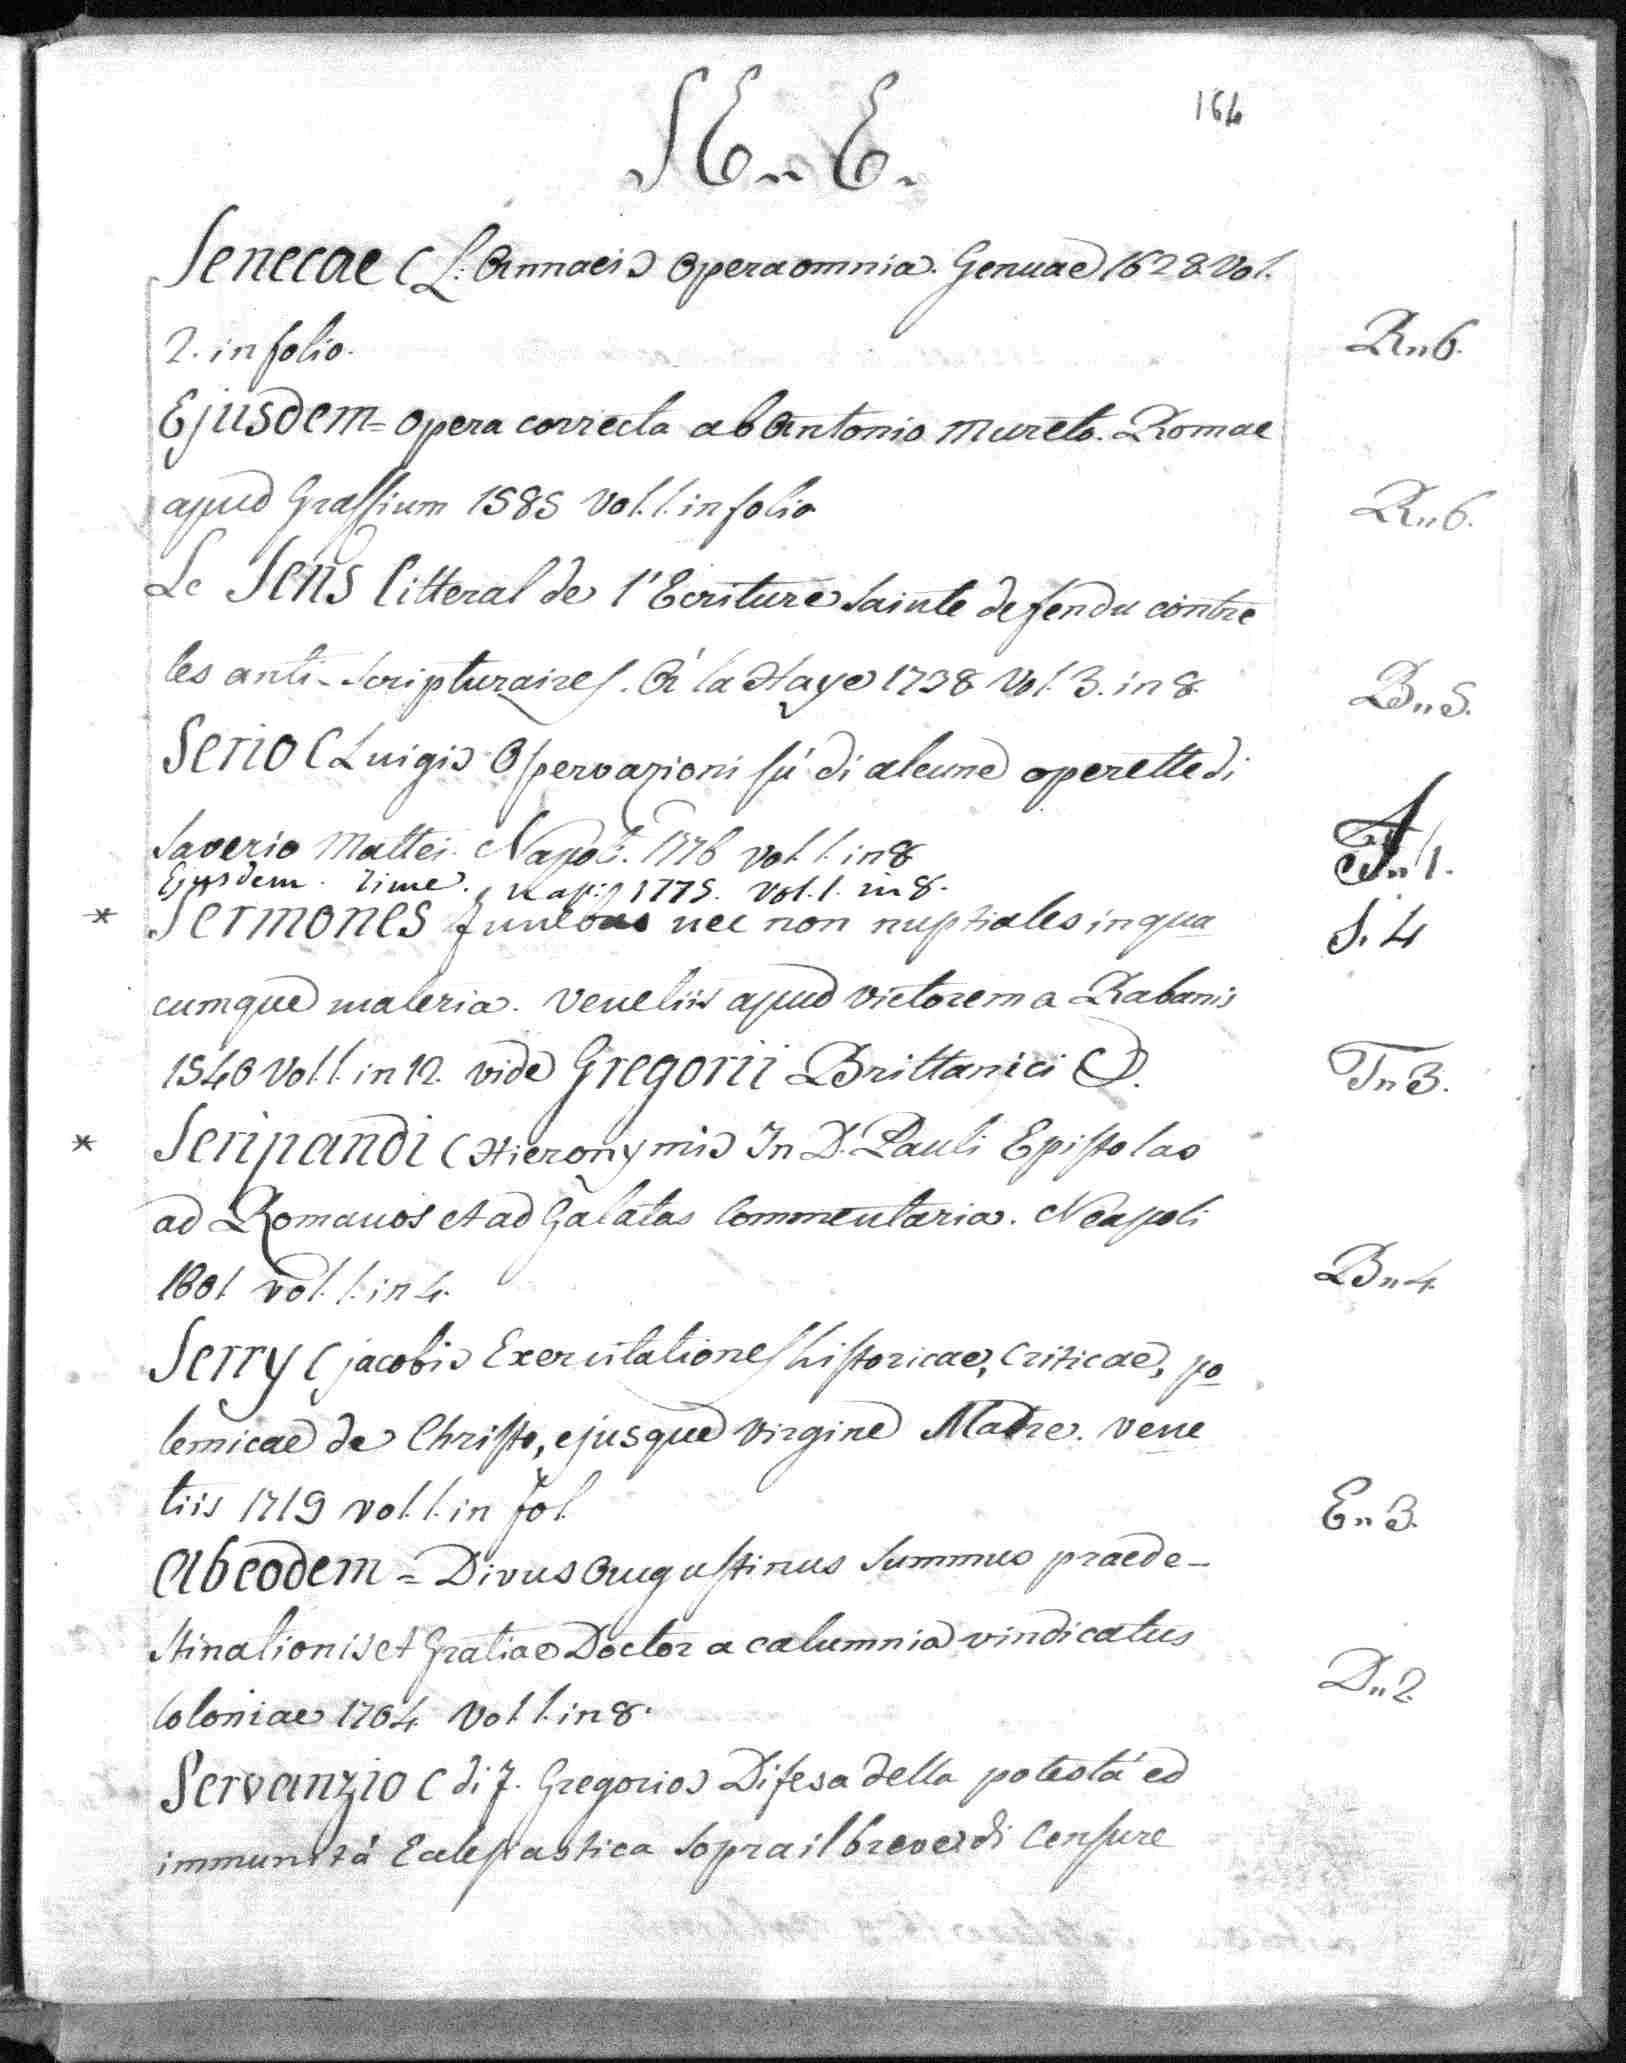 164
SE.. E.
Senecae (L: Annaei) Opera omnia. Genuae 1628. Vol.
2. in folio. R..6.
Ejusdem = opera correcta ab Antonio Mureto. Romae
apud Grassium 1585 Vol. 1. in folio R..6.
Le Sens litteral de l'Ecriture Sainte defendu contre
les anti-Scripturaires. A' la Haye 1738 Vol. 3. in 8. B..5.
Serio (Luigi) Osservazioni sú di alcune operette di
Saverio Mattei. Napoli. 1776 vol. 1. in 8 1.
Ejusdem. rime. Nap: 1775. vol. 1. in 8. S. 4
* Sermones funebres nec non nuptiales in qua
cumque materia. Venetiis apud victorem a Rabanis
1540 Vol. 1. in 12. vide Gregorii Brittanici T..3.
* Seripandi (Hieronymi) In D. Pauli Epistolas
ad Romanos et ad Galatas Commentaria. Neapoli
1601 vol. 1. in 4. B..4.
Serry (jacobi) Exercitationes historicae, Criticae, po
lemicae de Christo, ejusque Virgine Matre. Vene
tiis 1719 vol. 1. in fol. E..3.
Ab eodem = Divus Augustinus Summus praede-
stinationis et Gratiae Doctor a calumnia vindicatus
Coloniae 1704 Vol. 1. in 8. D..2.
Servanzio (di F. Gregorio) Difesa della potestá ed
immunitá Eclesiastica sopra il breve di Censure